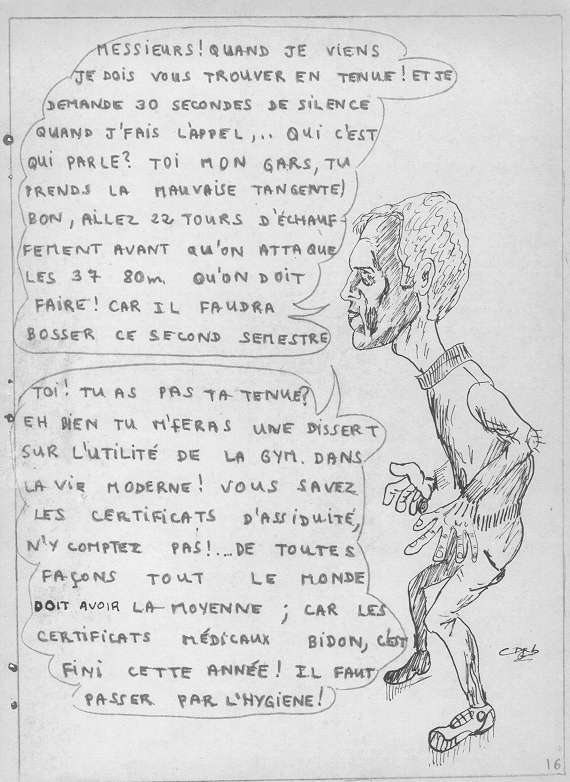 MESSIEURS! QUAND JE VIENS
JE DOIS VOUS TROUVER EN TENUE! ET JE
DEMANDE 30 SECONDES DE SILENCE
QUAND J'FAIS L'APPEL,.. QUI C'EST
QUI PARLE? TOI MON GARS, TU
PRENDS LA MAUVAISE TANGENTE!
BON, ALLEZ 22 TOURS D'ÉCHAUF-
FEMENT AVANT QU'ON ATTAQUE
LES 37 80m. QU'ON DOIT
FAIRE! CAR IL FAUDRA
BOSSER CE SECOND SEMESTRE
TOI! TU AS PAS TA TENUE?
EH BIEN TU M'FERAS UNE DISSERT
SUR L'UTILITÉ DE LA GYM. DANS
LA VIE MODERNE! VOUS SAVEZ
LES CERTIFICATS D'ASSIDUITÉ,
N'Y COMPTEZ PAS!...DE TOUTES
FAÇONS TOUT LE MONDE
DOIT AVOIR LA MOYENNE ; CAR LES
CERTIFICATS MÉDICAUX BIDON, C'EST
FINI CETTE ANNÉE! IL FAUT
PASSER PAR L'HYGIENE!
16